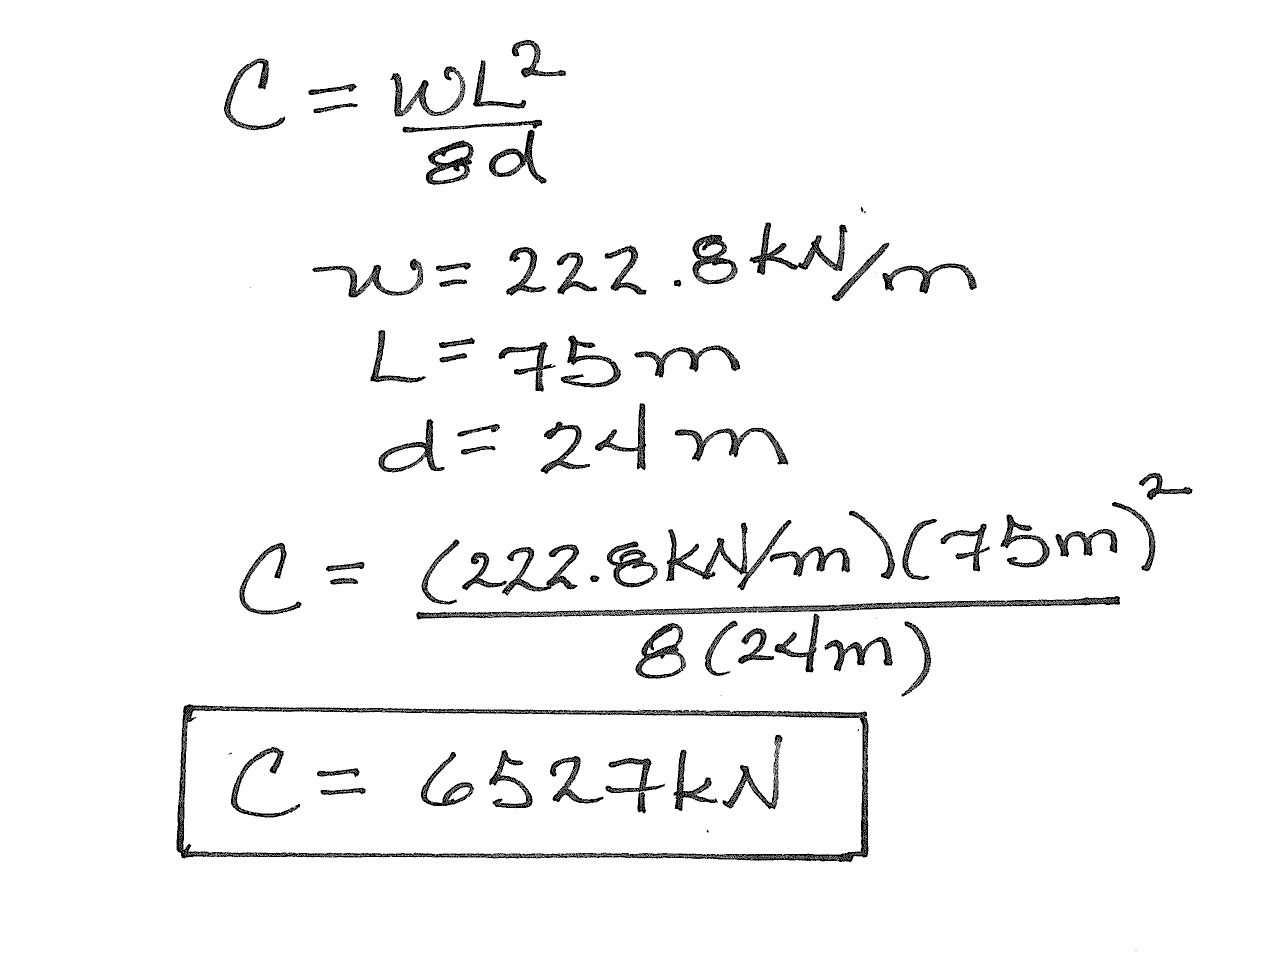 C = WL²
8d
w = 222.8 kN/m
L = 75 m
d = 24 m
C = (222.8 kN/m)(75m)²
8(24m)
C = 6527 kN